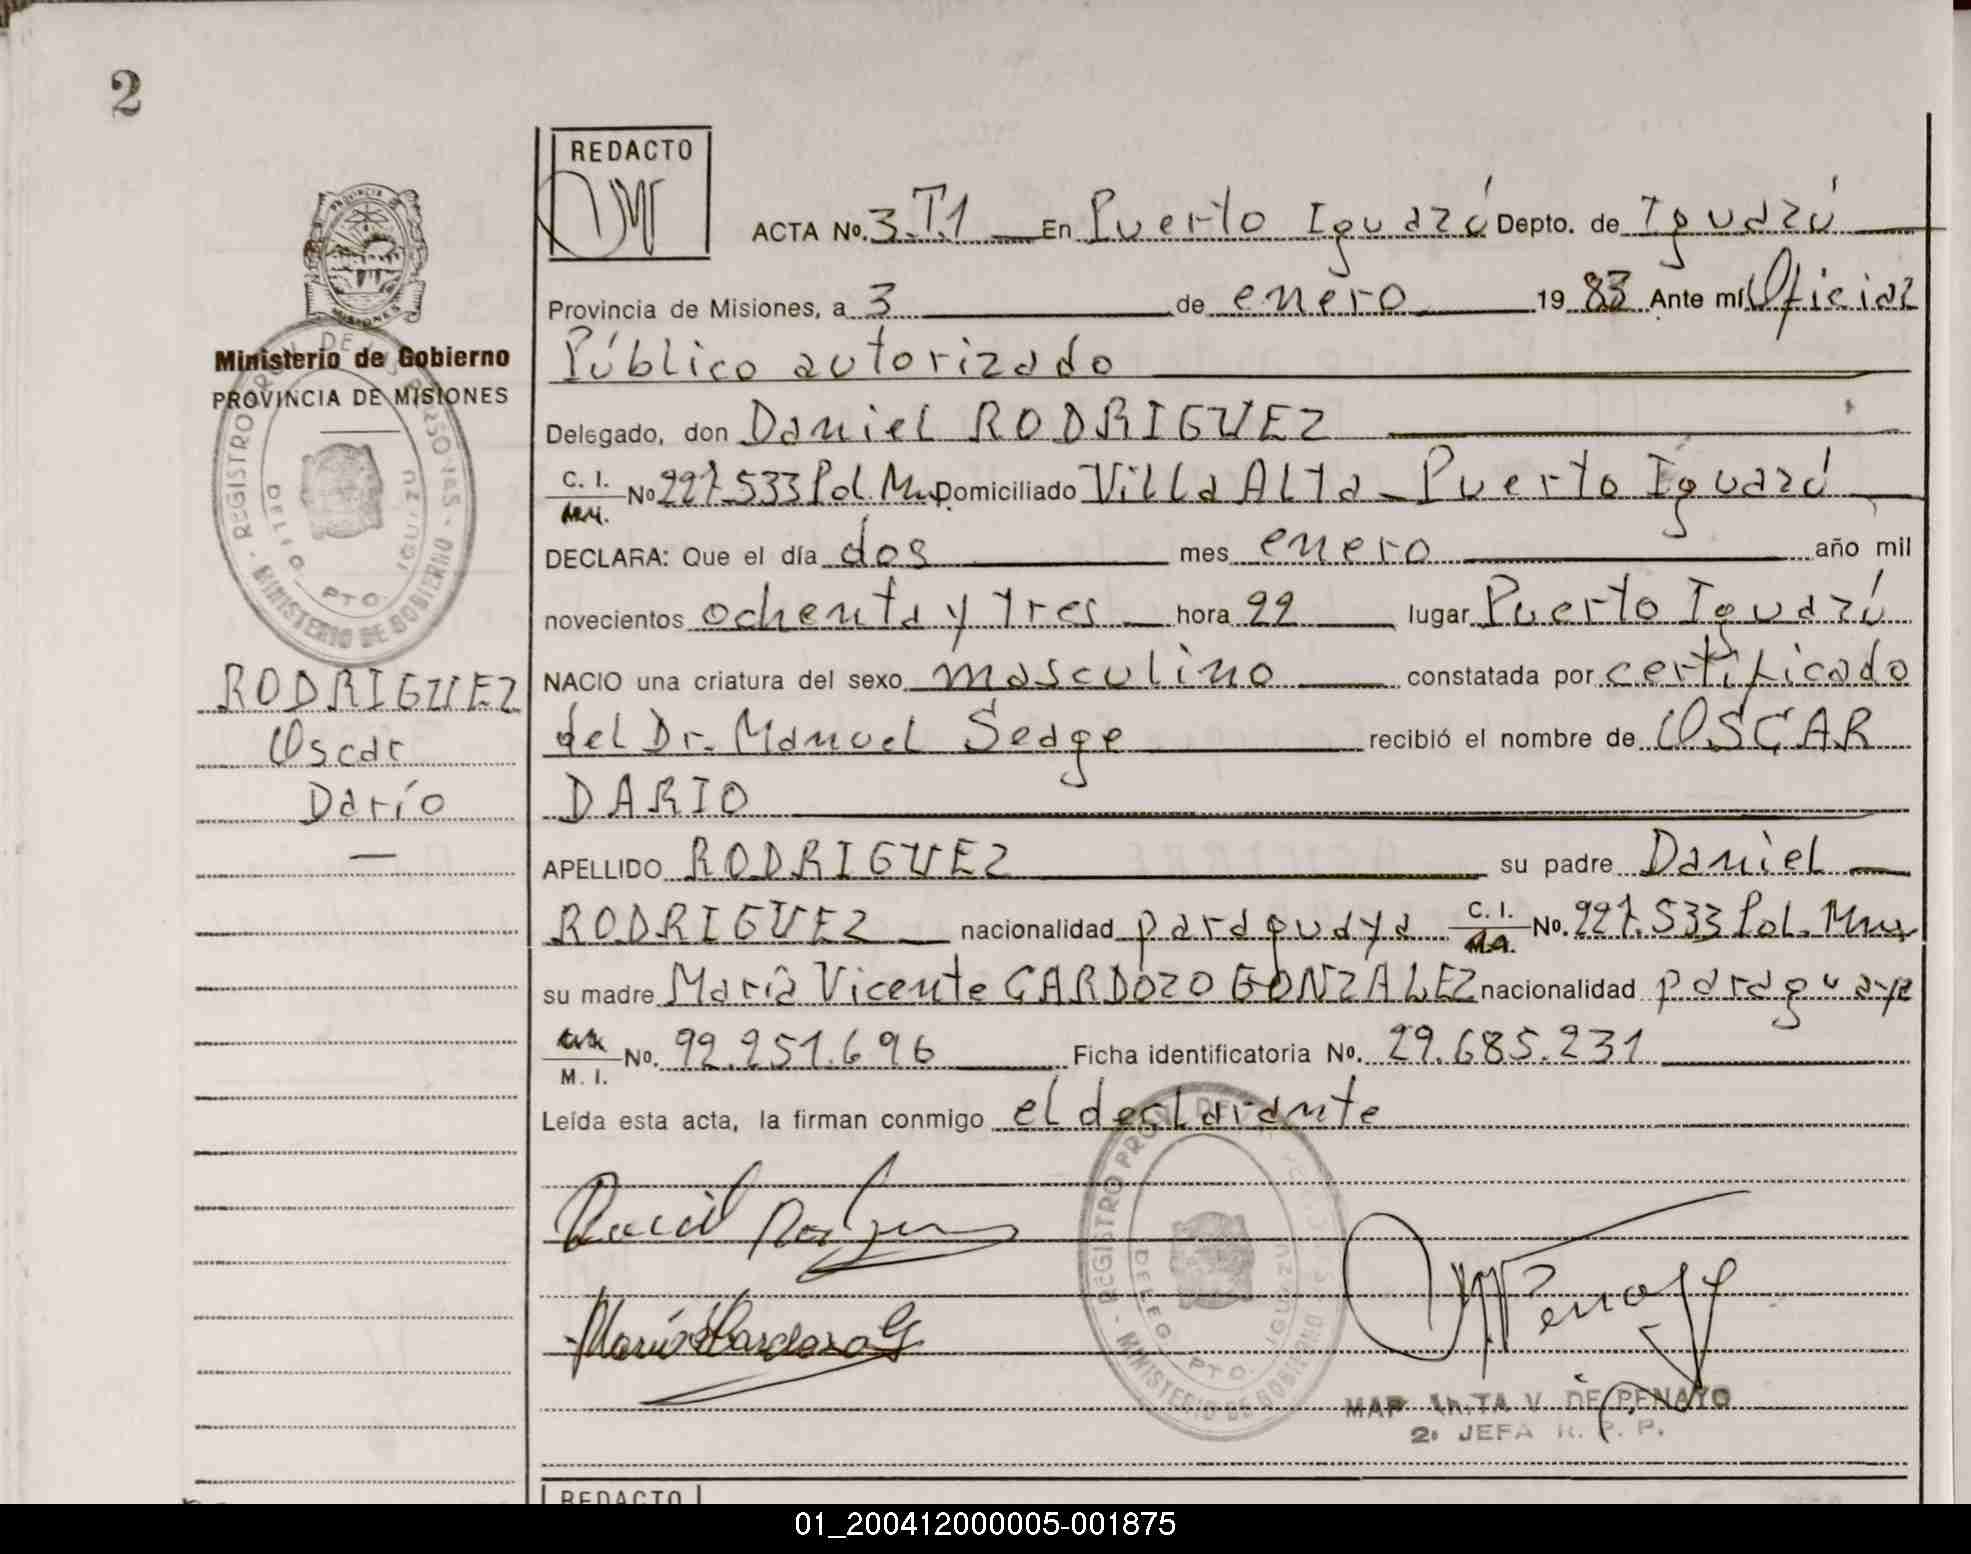 2
REDACTO
ACTA No. 3.T.1 En Puerto Iguazú Depto. de Iguazú
Provincia de Misiones, a 3 de enero 19 83 Ante mí Oficial
Público autorizado
Delegado, don Daniel RODRIGUEZ
C. I. No 227.533 Pol. Mns Domiciliado Villa Alta - Puerto Iguazú
DECLARA: Que el día dos mes enero año mil
novecientos ochenta y tres hora 22 lugar Puerto Iguazú
NACIO una criatura del sexo masculino constatada por certificado
del Dr. Manuel Seage recibió el nombre de OSCAR
DARIO
APELLIDO RODRIGUEZ su padre Daniel
RODRIGUEZ nacionalidad paraguaya C. I. No. 227.533 Pol. Mns
su madre María Vicente CARDOZO GONZALEZ nacionalidad paraguaya
No. 92.251.696 Ficha identificatoria No. 29.685.231
M. I.
Leída esta acta, la firman conmigo el declarante
María Cardozo G
V. DE PENAYO
2a JEFA R. P. P.
PROVINCIA DE
MISIONES
Ministerio de Gobierno
PROVINCIA DE MISIONES
REGISTRO PROV. DE LAS PERSONAS - MINISTERIO DE GOBIERNO
DELEG. PTO. IGUAZU
RODRIGUEZ
Oscar
Darío
REGISTRO PROV. DE - MINISTERIO DE GOBIERNO
DELEG. PTO. IGUAZU
REDACTO
01_200412000005-001875